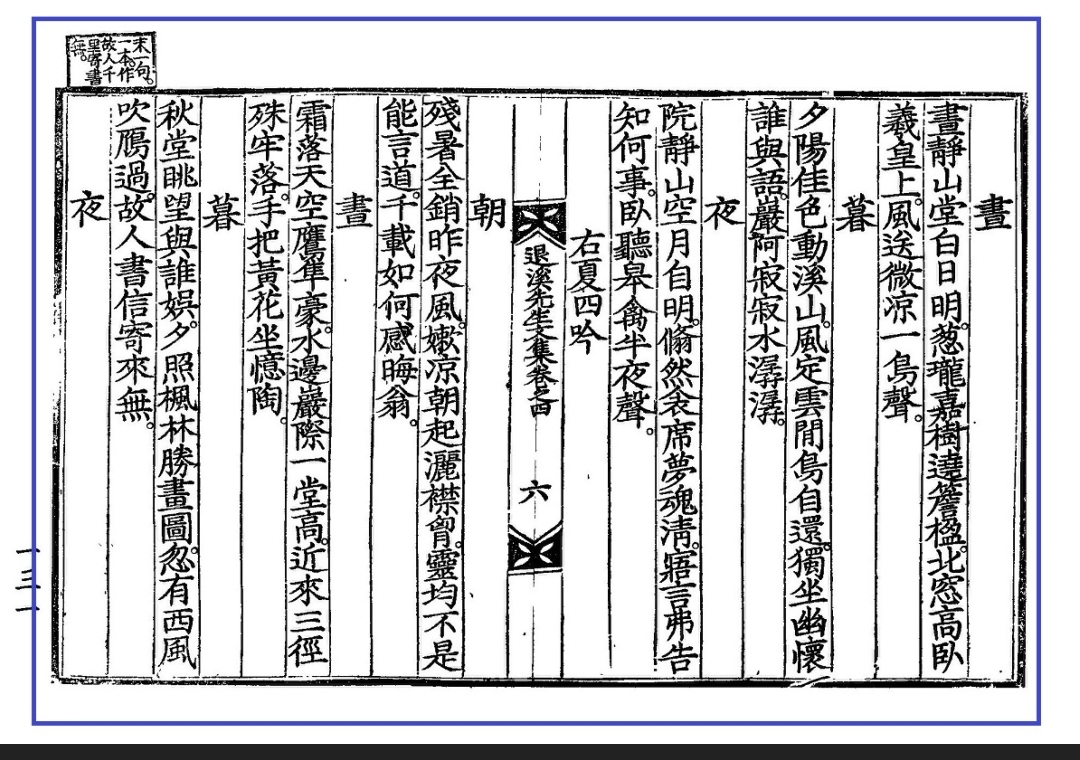 晝
晝靜山堂白日明。葱瓏嘉樹遶簷楹。北窓高臥
羲皇上。風送微凉一鳥聲。
暮
夕陽佳色動溪山。風定雲閒鳥自還。獨坐幽懷
誰與語。巖阿寂寂水潺潺。
夜
院靜山空月自明。翛然衾席夢魂淸。寤言弗告
知何事。臥聽皐禽半夜聲。
右夏四吟
退溪先生文集卷之四 六
朝
殘暑全銷昨夜風。嫩凉朝起灑襟胷。靈均不是
能言道。千載如何感晦翁。
晝
霜落天空鷹隼豪。水邊巖際一堂高。近來三徑
殊牢落。手把黃花坐憶陶。
暮
秋堂眺望與誰娛。夕照楓林勝畫圖。忽有西風
吹鴈過。故人書信寄來無。
夜
末一句。
一本作
故人千
里寄書
無。
一三一